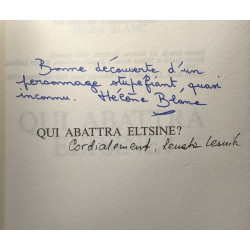 Bonne découverte d'un
personnage stupéfiant, quasi
inconnu. Hélène Blanc
QUI ABATTRA ELTSINE?
Cordialement, Renata Lesnik